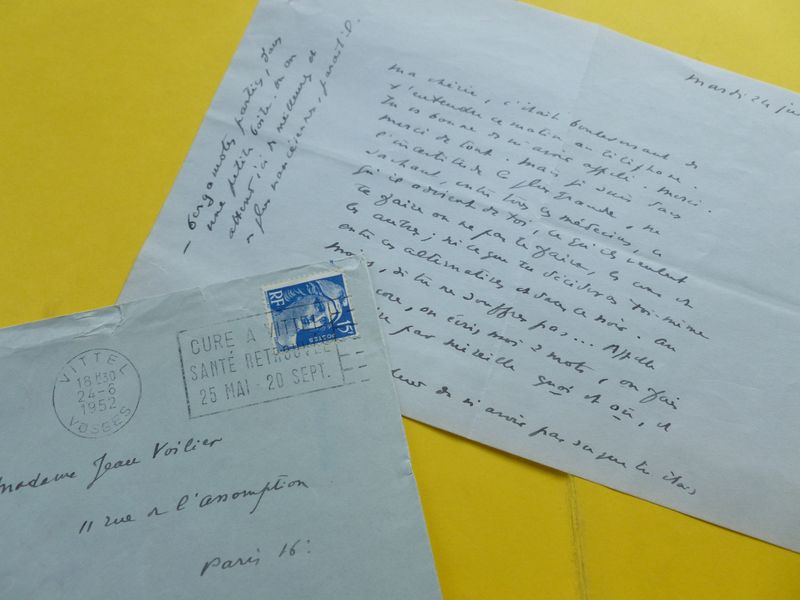 mardi 24 ju
ma chérie, c'était bouleversant de
t'entendre ce matin au téléphone.
Tu es bonne de m'avoir appelé. merci.
merci de tout. mais je suis dans
l'incertitude la plus grande, ne
sachant, entre tous les médecins, ce
qu'il advient de toi, ce qu'ils veulent
te faire ou ne pas te faire, les uns et
les autres; ni ce que tu décideras toi-même
entre ces alternatives et dans ce noir. au
moins, si tu ne souffres pas... Appelle
encore, ou écris moi 2 mots, ou fais
par mireille quoi et où, et
de n'avoir pas su que tu étais
- bergamotes parties, dans
une petite boîte. on en
attend, ici, de meilleures et
plus nancéiennes, paraît-il.
RF
15F
POSTES
VITTEL
18H30
24-6
1952
VOSGES
CURE A VITTEL
SANTÉ RETROUVÉE
25 MAI - 20 SEPT.
madame Jean Voilier
11 rue de l'assomption
Paris 16e